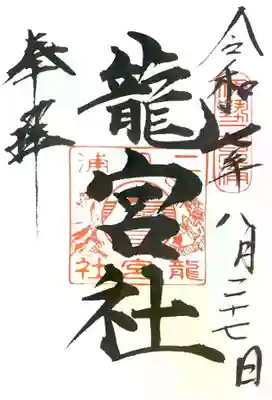 令和七年八月二十七日
龍宮社
奉拝
龍宮社